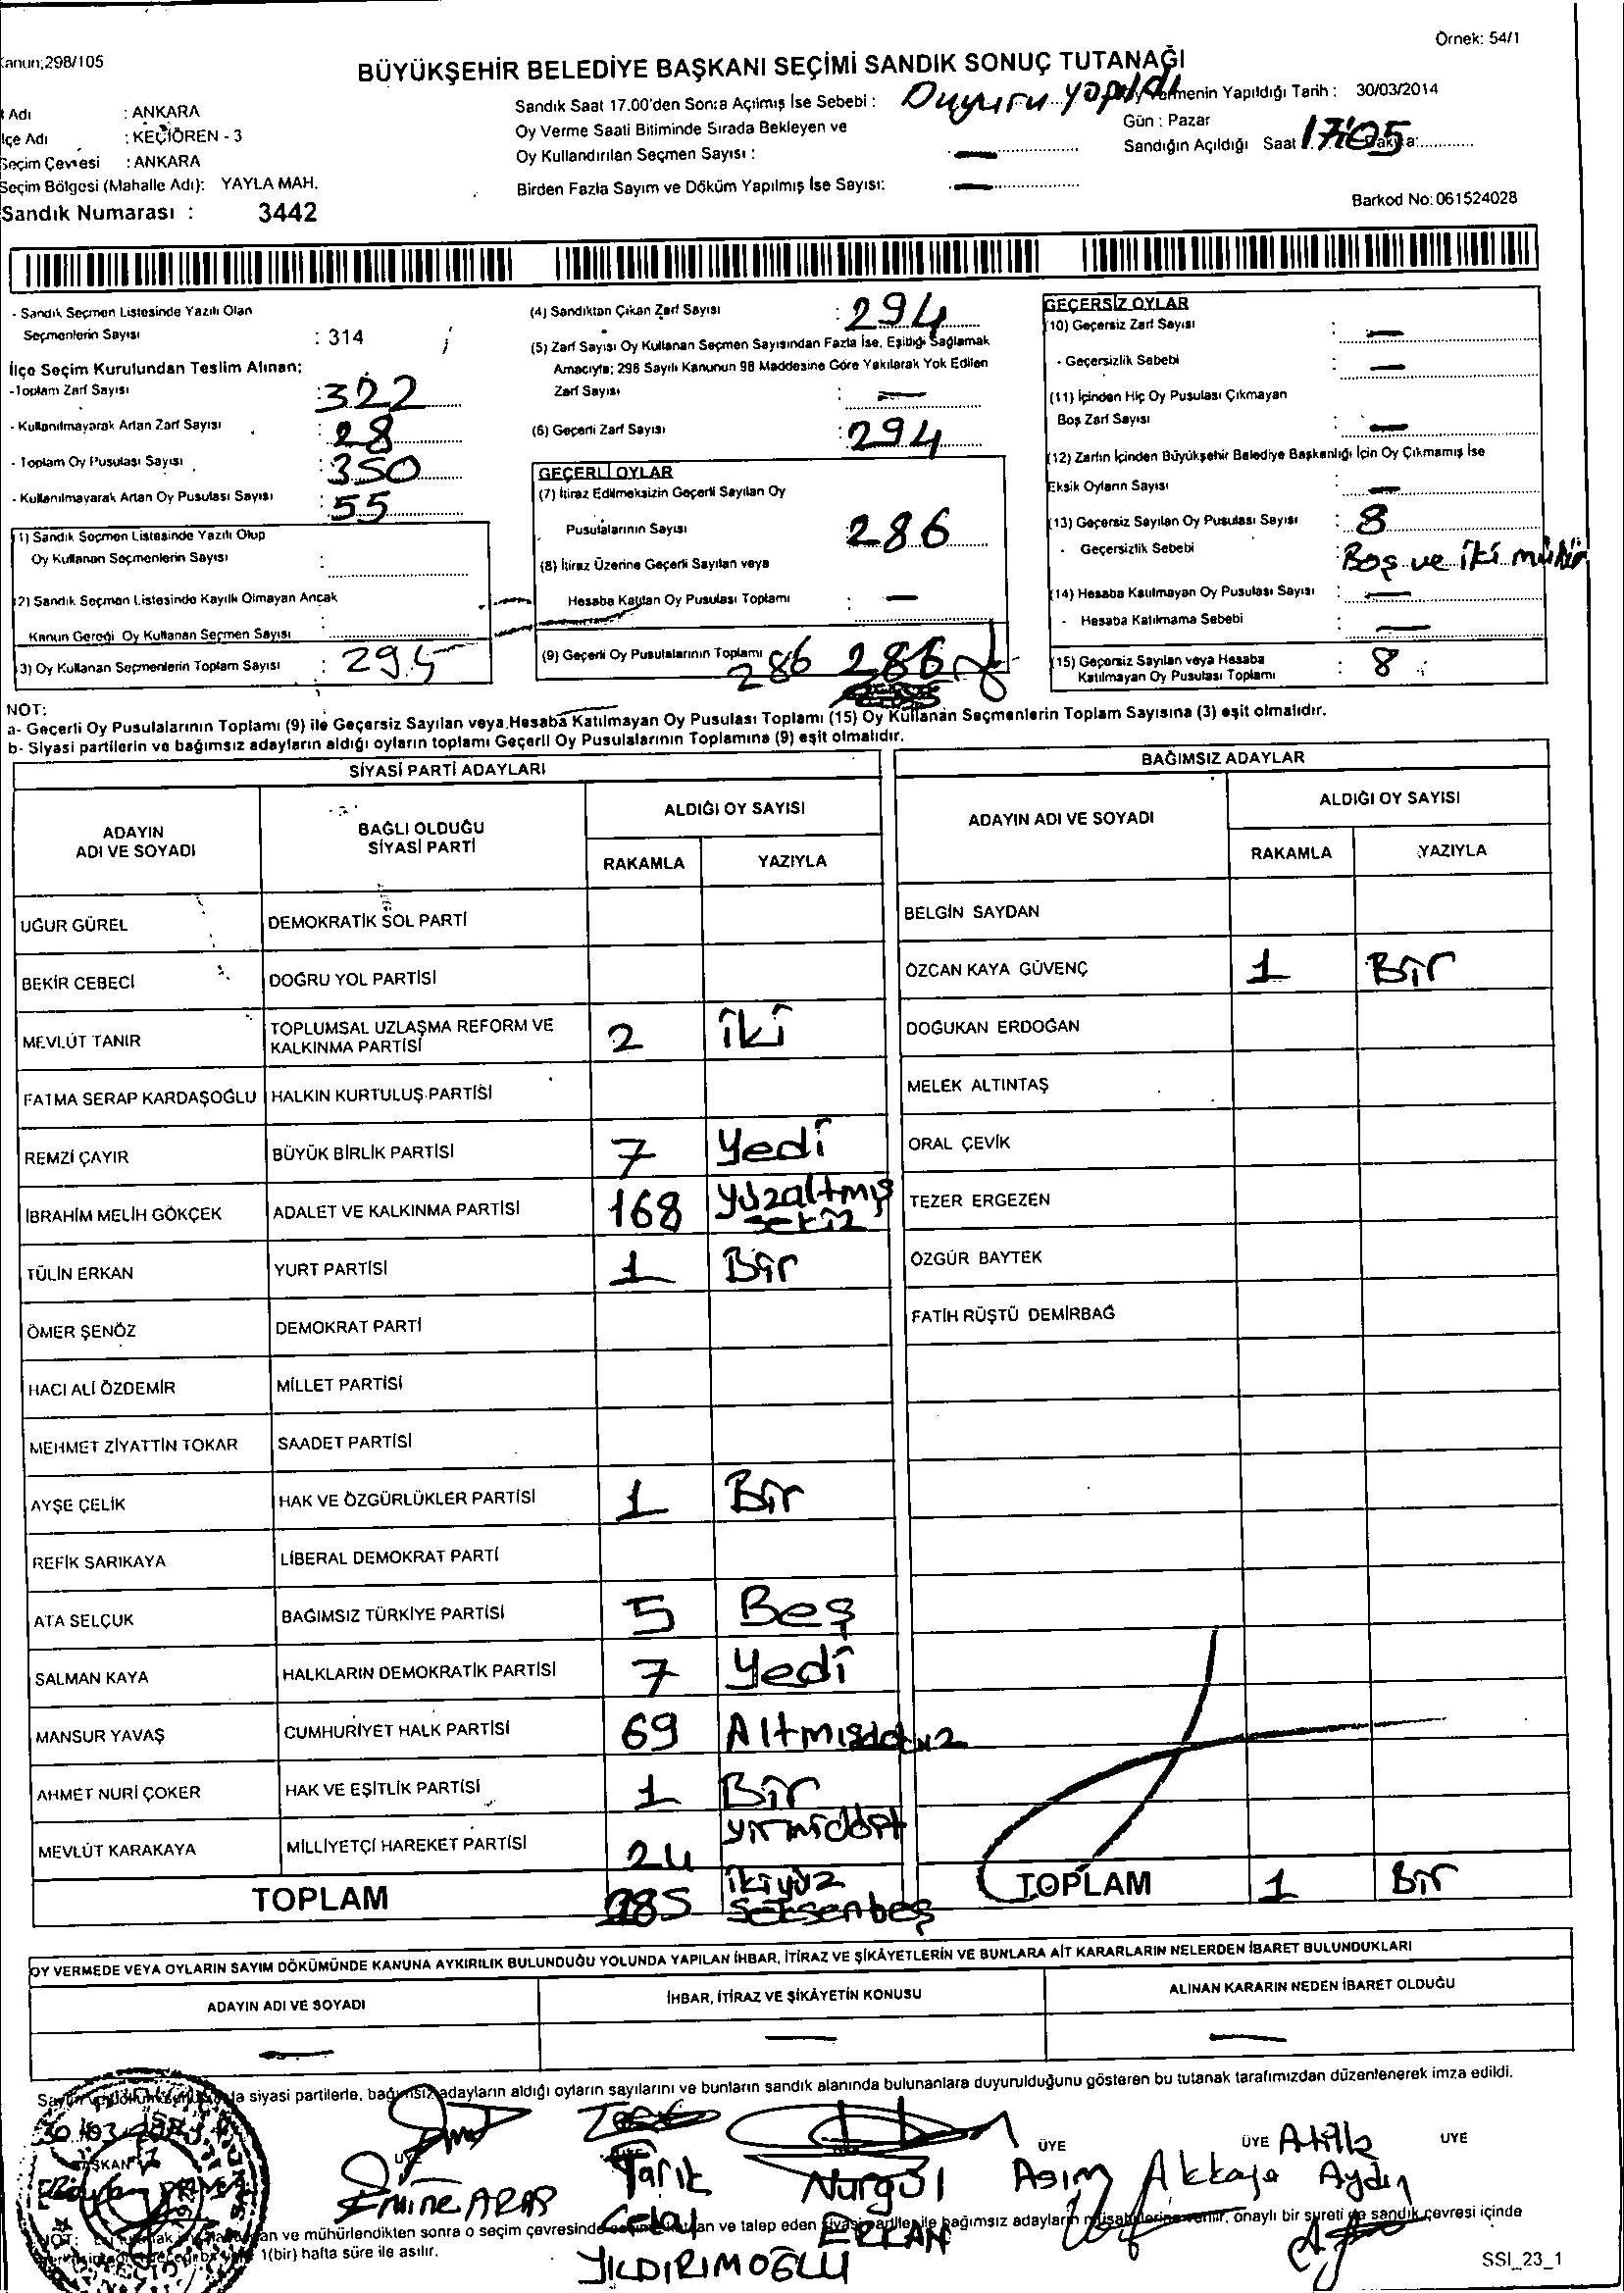 Örnek: 54/1
Kanun;298/105
BÜYÜKŞEHİR BELEDİYE BAŞKANI SEÇİMİ SANDIK SONUÇ TUTANAĞI
Adı : ANKARA
İlçe Adı : KEÇİÖREN - 3
Seçim Çevresi : ANKARA
Seçim Bölgesi (Mahalle Adı): YAYLA MAH.
Sandık Numarası : 3442
Sandık Saat 17.00'den Sonra Açılmış İse Sebebi : Duyuru yapıldı
Oy Verme Saati Bitiminde Sırada Bekleyen ve
Oy Kullandırılan Seçmen Sayısı : —
Birden Fazla Sayım ve Döküm Yapılmış İse Sayısı: —
Oy Vermenin Yapıldığı Tarih : 30/03/2014
Gün : Pazar
Sandığın Açıldığı Saat 17:05
Barkod No: 061524028
- Sandık Seçmen Listesinde Yazılı Olan
Seçmenlerin Sayısı : 314
İlçe Seçim Kurulundan Teslim Alınan;
-Toplam Zarf Sayısı : 322
- Kullanılmayarak Artan Zarf Sayısı : 28
- Toplam Oy Pusulası Sayısı : 350
- Kullanılmayarak Artan Oy Pusulası Sayısı : 55
1) Sandık Seçmen Listesinde Yazılı Olup
Oy Kullanan Seçmenlerin Sayısı :
2) Sandık Seçmen Listesinde Kayıtlı Olmayan Ancak
Kanun Gereği Oy Kullanan Seçmen Sayısı :
3) Oy Kullanan Seçmenlerin Toplam Sayısı : 295
(4) Sandıktan Çıkan Zarf Sayısı : 294
(5) Zarf Sayısı Oy Kullanan Seçmen Sayısından Fazla İse, Eşitliği Sağlamak
Amacıyla; 298 Sayılı Kanunun 98 Maddesine Göre Yakılarak Yok Edilen
Zarf Sayısı : —
(6) Geçerli Zarf Sayısı : 294
GEÇERLİ OYLAR
(7) İtiraz Edilmeksizin Geçerli Sayılan Oy
Pusulalarının Sayısı 286
(8) İtiraz Üzerine Geçerli Sayılan veya
Hesaba Katılan Oy Pusulası Toplamı : —
(9) Geçerli Oy Pusulalarının Toplamı 286 286
GEÇERSİZ OYLAR
(10) Geçersiz Zarf Sayısı : —
- Geçersizlik Sebebi : —
(11) İçinden Hiç Oy Pusulası Çıkmayan
Boş Zarf Sayısı : —
(12) Zarfın İçinden Büyükşehir Belediye Başkanlığı İçin Oy Çıkmamış İse
Eksik Oyların Sayısı : —
(13) Geçersiz Sayılan Oy Pusulası Sayısı : 8
- Geçersizlik Sebebi : Boş ve iki mühür
(14) Hesaba Katılmayan Oy Pusulası Sayısı : —
- Hesaba Katılmama Sebebi : —
(15) Geçersiz Sayılan veya Hesaba
Katılmayan Oy Pusulası Toplamı : 8
NOT:
a- Geçerli Oy Pusulalarının Toplamı (9) ile Geçersiz Sayılan veya Hesaba Katılmayan Oy Pusulası Toplamı (15) Oy Kullanan Seçmenlerin Toplam Sayısına (3) eşit olmalıdır.
b- Siyasi partilerin ve bağımsız adayların aldığı oyların toplamı Geçerli Oy Pusulalarının Toplamına (9) eşit olmalıdır.
SİYASİ PARTİ ADAYLARI
ADAYIN ADI VE SOYADI BAĞLI OLDUĞU SİYASİ PARTİ ALDIĞI OY SAYISI
RAKAMLA YAZIYLA
UĞUR GÜREL DEMOKRATİK SOL PARTİ
BEKİR CEBECİ DOĞRU YOL PARTİSİ
MEVLÜT TANIR TOPLUMSAL UZLAŞMA REFORM VE KALKINMA PARTİSİ 2 iki
FATMA SERAP KARDAŞOĞLU HALKIN KURTULUŞ PARTİSİ
REMZİ ÇAYIR BÜYÜK BİRLİK PARTİSİ 7 Yedi
İBRAHİM MELİH GÖKÇEK ADALET VE KALKINMA PARTİSİ 168 Yüzaltmış sekiz
TÜLİN ERKAN YURT PARTİSİ 1 Bir
ÖMER ŞENÖZ DEMOKRAT PARTİ
HACI ALİ ÖZDEMİR MİLLET PARTİSİ
MEHMET ZİYATTİN TOKAR SAADET PARTİSİ
AYŞE ÇELİK HAK VE ÖZGÜRLÜKLER PARTİSİ 1 Bir
REFİK SARIKAYA LİBERAL DEMOKRAT PARTİ
ATA SELÇUK BAĞIMSIZ TÜRKİYE PARTİSİ 5 Beş
SALMAN KAYA HALKLARIN DEMOKRATİK PARTİSİ 7 Yedi
MANSUR YAVAŞ CUMHURİYET HALK PARTİSİ 69 Altmışdokuz
AHMET NURİ ÇOKER HAK VE EŞİTLİK PARTİSİ 1 Bir
MEVLÜT KARAKAYA MİLLİYETÇİ HAREKET PARTİSİ 24 yirmidört
TOPLAM 285 ikiyüz seksenbeş
BAĞIMSIZ ADAYLAR
ADAYIN ADI VE SOYADI ALDIĞI OY SAYISI
RAKAMLA YAZIYLA
BELGİN SAYDAN
ÖZCAN KAYA GÜVENÇ 1 Bir
DOĞUKAN ERDOĞAN
MELEK ALTINTAŞ
ORAL ÇEVİK
TEZER ERGEZEN
ÖZGÜR BAYTEK
FATİH RÜŞTÜ DEMİRBAĞ
TOPLAM 1 Bir
OY VERMEDE VEYA OYLARIN SAYIM DÖKÜMÜNDE KANUNA AYKIRILIK BULUNDUĞU YOLUNDA YAPILAN İHBAR, İTİRAZ VE ŞİKÂYETLERİN VE BUNLARA AİT KARARLARIN NELERDEN İBARET BULUNDUKLARI
ADAYIN ADI VE SOYADI İHBAR, İTİRAZ VE ŞİKÂYETİN KONUSU ALINAN KARARIN NEDEN İBARET OLDUĞU
— — —
siyasi partilerle, bağımsız adayların aldığı oyların sayılarını ve bunların sandık alanında bulunanlara duyurulduğunu gösteren bu tutanak tarafımızdan düzenlenerek imza edildi.
BAŞKAN ÜYE ÜYE ÜYE ÜYE
Emine ARAS
Tarık Celal YILDIRIMOĞLU
Nurgül ERCAN
Asım Akkaya
Atilla Aydın
ve mühürlendikten sonra o seçim çevresinde ve talep eden siyasi partiler ile bağımsız adayların müşahitlerine verilir, onaylı bir sureti de sandık çevresi içinde
1(bir) hafta süre ile asılır.
SSI_23_1